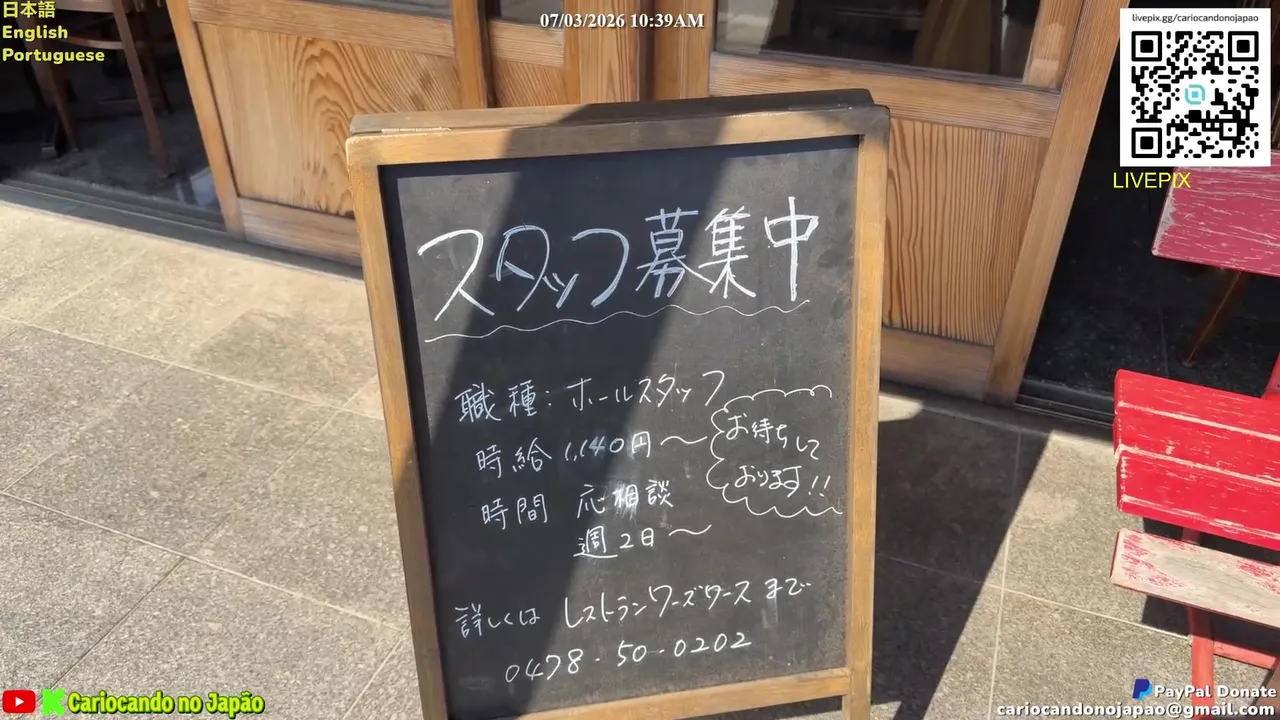 日本語
English
Portuguese
07/03/2026 10:39AM
livepix.gg/cariocandonojapao
LIVEPIX
スタッフ募集中
職種：ホールスタッフ
時給 1,140円〜
お待ちして
おります!!
時間 応相談
週2日〜
詳しくは レストランワーズワースまで
0478-50-0202
Cariocando no Japão
PayPal Donate
cariocandonojapao@gmail.com